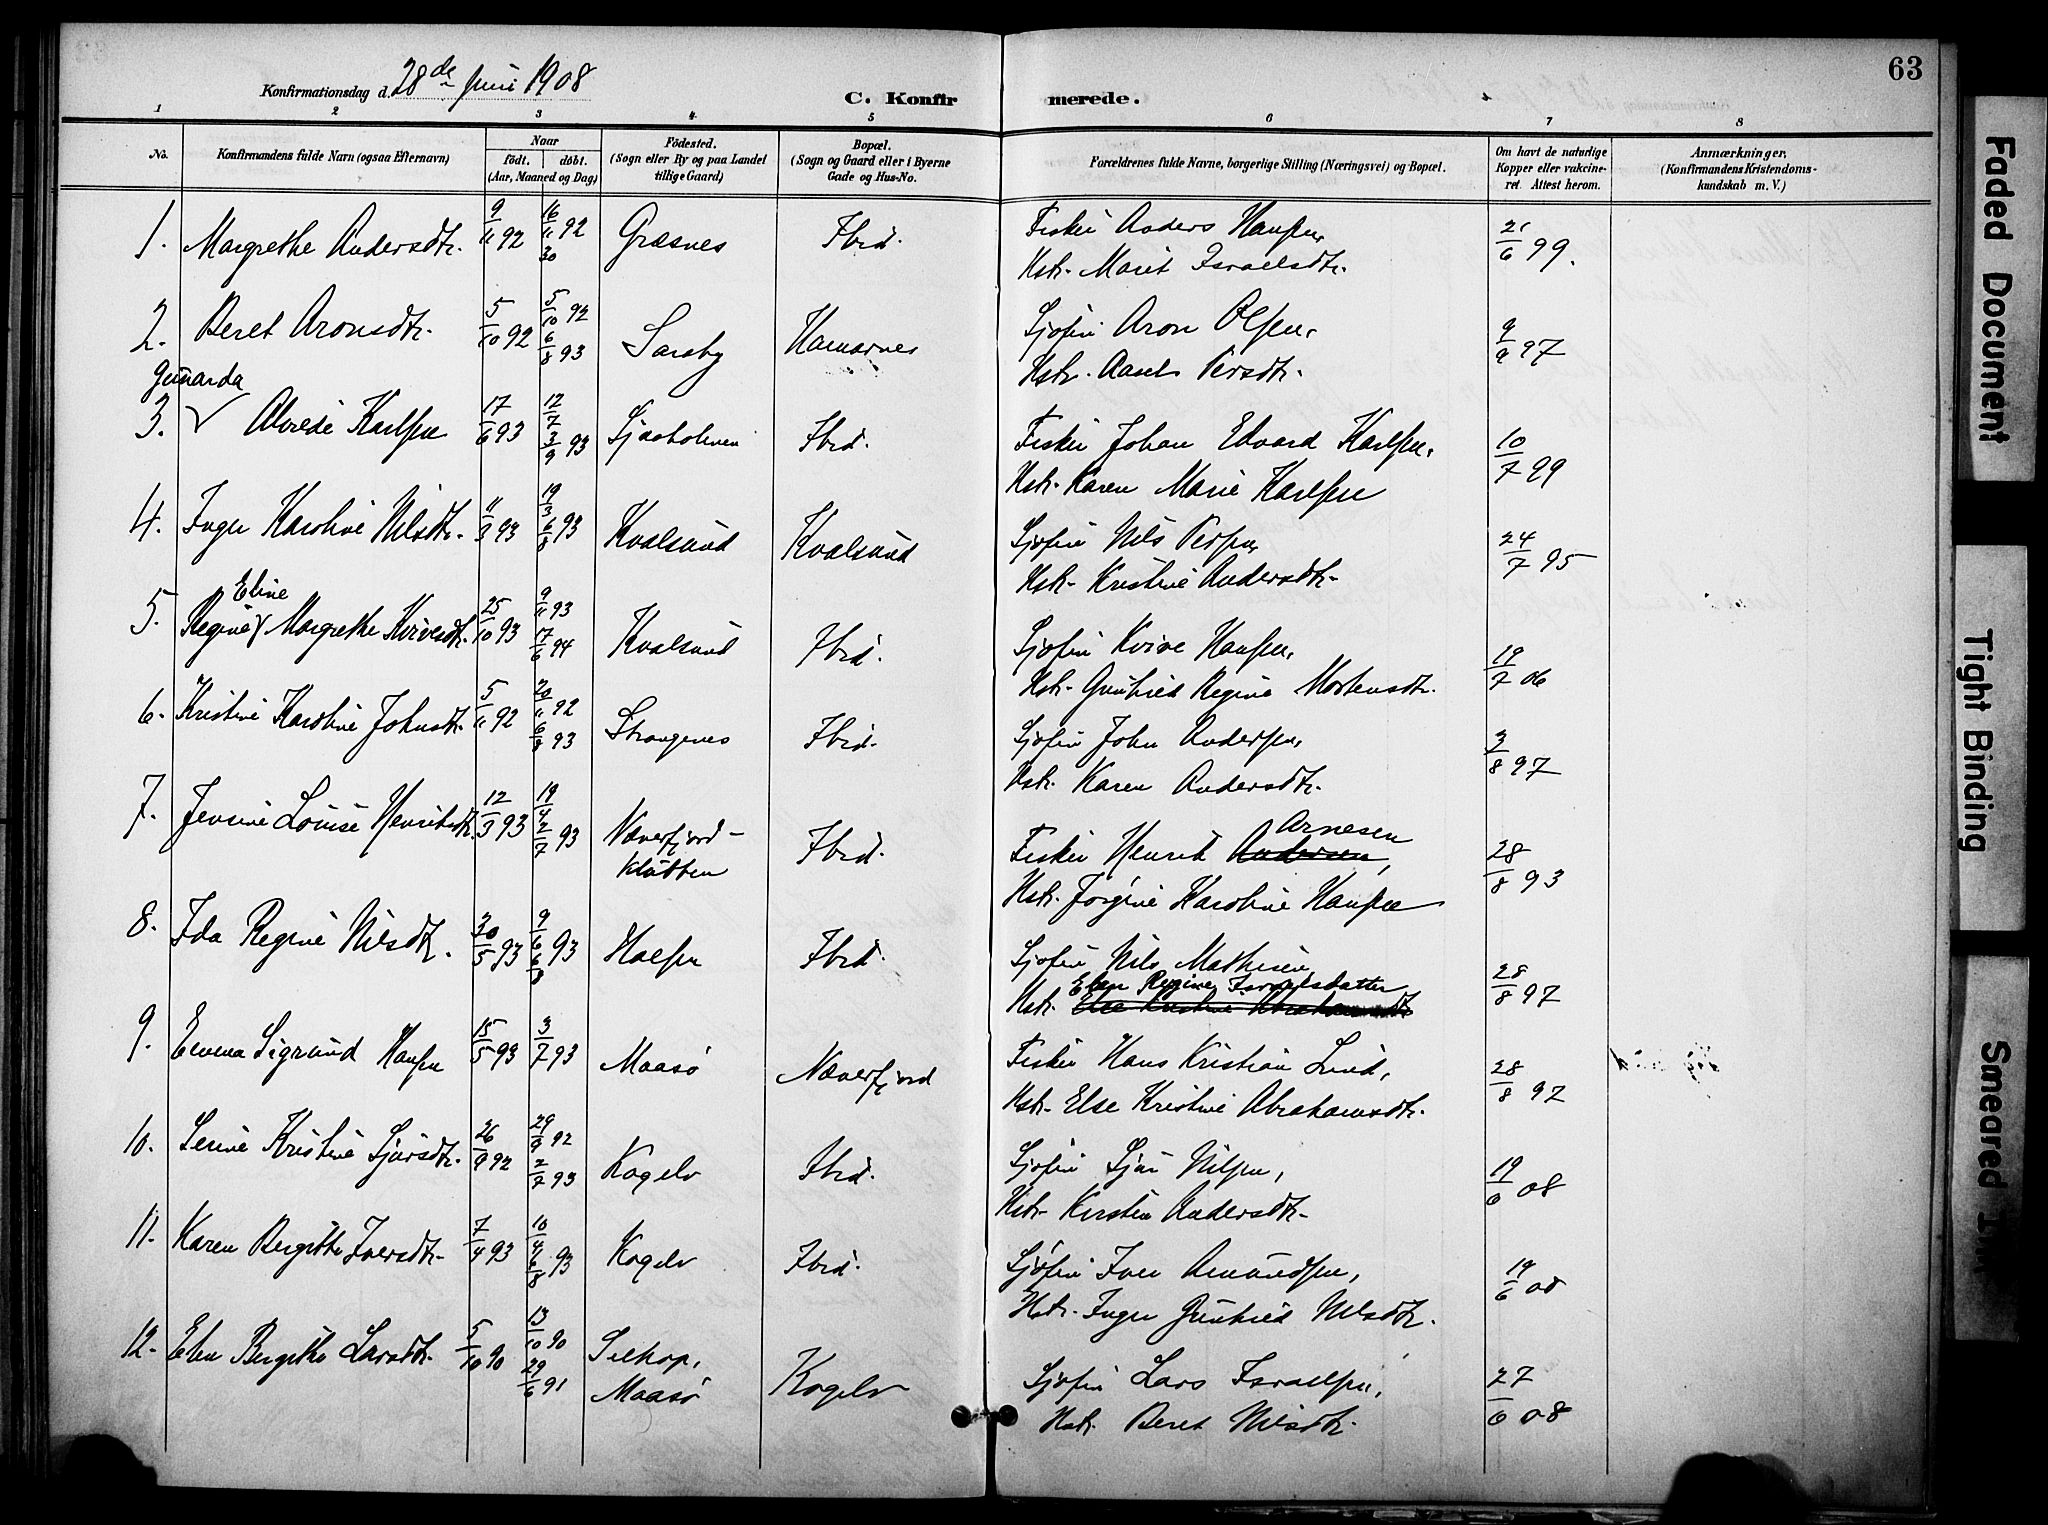 63
Konfirmationsdag d. 28de Juni 1908
C. Konfirmerede.
1 2 3 4 5 6 7 8
No.
Konfirmandens fulde Navn (ogsaa Efternavn)
Naar
født. døbt.
(Aar, Maaned og Dag)
Fødested.
(Sogn eller By og paa Landet
tillige Gaard)
Bopæl.
(Sogn og Gaard eller i Byerne
Gade og Hus-No.
Forældrenes fulde Navne, borgerlige Stilling (Næringsvei) og Bopæl.
Om havt de naturlige
Kopper eller vakcine-
ret. Attest herom.
Anmærkninger.
(Konfirmandens Kristendoms-
kundskab m. V.)
1. Margrethe Andersdtr. 9/11 92 16/11 92 30 Græsnes Ibid. Fisker Anders Hansen, 21/6 99.
Hstr. Marit Israelsdtr.
2. Beret Aronsdtr. 5/10 92 5/10 92 6/8 93 Saraby Hamarnes Sjøfin Aron Olsen, 9/9 97
Hstr. Aasel Persdtr.
Gunarda
3. Alvede Karlsen 17/6 93 12/7 3/9 93 Sjaaholmen Ibid. Fisker Johan Edvard Karlsen, 10/7 99
Hstr. Karen Marie Karlsen
4. Inger Karoline Nilsdtr. 11/3 93 19/3 6/8 93 Kvalsund Kvalsund Sjøfin Nils Persen, 24/7 95
Hstr. Kristine Andersdtr.
Eline
5. Regine Margrethe Kvivesdtr. 25/10 93 9/11 93 17/6 94 Kvalsund Ibid. Sjøfin Kvive Hansen, 19/7 06
Hstr. Gunhild Regine Mortensdtr.
6. Kristine Karoline Johnsdtr. 5/11 92 20/11 92 6/8 93 Strangenes Ibid. Sjøfin John Andersen, 3/8 97
Hstr. Karen Andersdtr.
Arnesen
7. Jensine Louise Henriksdtr. 12/3 93 19/4 2/7 93 Næverfjord- Ibid. Fisker Henrik Andersen, 28/8 93
Klubben Hstr. Jørgine Karoline Hansen
8. Ida Regine Nilsdtr. 30/5 93 9/6 6/8 93 Ibid. Sjøfin Nils Mathisen 28/8 97
Elen Regine Israelsdatter
Hstr. Else Kristine Abrahamsdtr
9. Emma Sigrund Hansen 15/5 93 3/7 93 Maasø Næverfjord Fisker Hans Kristian Lund, 28/8 97
Hstr. Else Kristine Abrahamsdtr.
10. Serine Kristine Sjursdtr. 26/9 92 29/9 92 2/7 93 Kogelv Ibid. Sjøfin Sjur Nilsen, 19/6 08
Hstr. Kirstin Andersdtr.
11. Karen Bergithe Iversdtr. 7/4 93 10/4 6/8 93 Kogelv Ibid. Sjøfin Iver Amundsen, 19/6 08
Hstr. Inger Gunhild Nilsdtr.
12. Elen Bergithe Larsdtr. 5/10 90 13/10 90 29/6 91 Selkop, Kogelv Sjøfin Lars Israelsen, 27/6 08
Maasø Hstr. Beret Nilsdtr.
Faded Document
Tight Binding
Smeared Ink